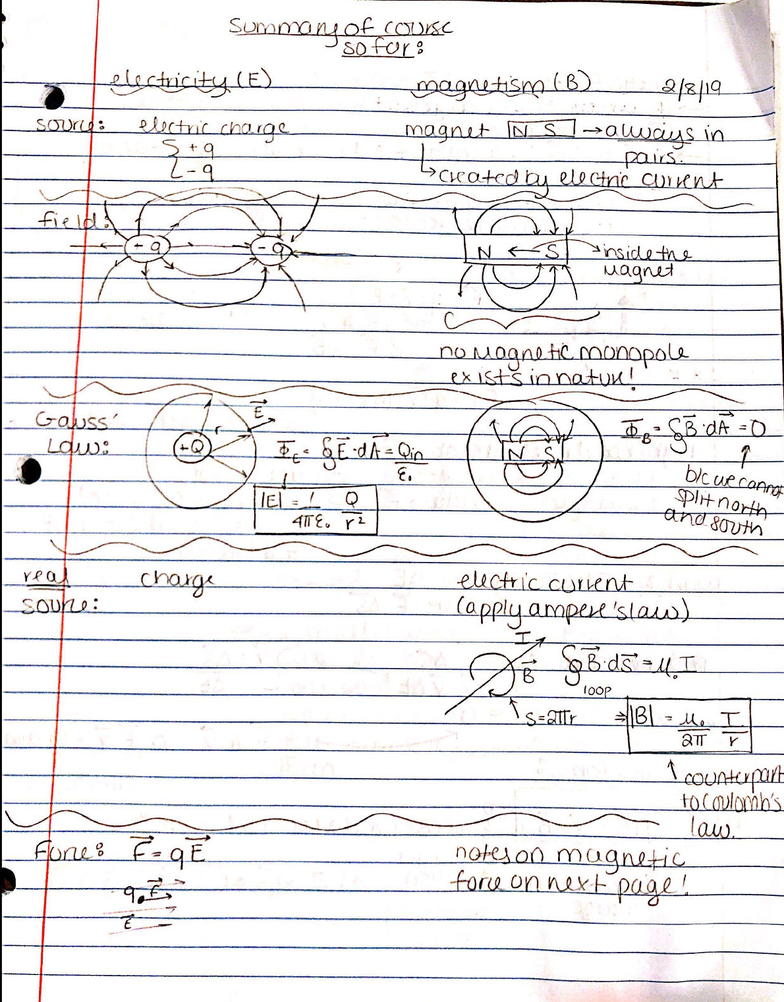 Summary of course
so far:
electricity (E) magnetism (B) 2/8/19
source: electric charge magnet N S → always in
{ +q pairs.
-q ↳ created by electric current
field:
+q -q N ← S inside the
magnet
no magnetic monopole
exists in nature!
Gauss'
Law:
+Q r E⃗ Φ_E = ∮E⃗·dA⃗ = Qin/ε₀
|E| = 1/4πε₀ Q/r²
N S Φ_B = ∮B⃗·dA⃗ = 0
↑
b/c we cannot
split north
and south
real charge electric current
source: (apply ampere's law)
I
B⃗ ∮B⃗·ds⃗ = μ₀I
loop
s=2πr ⇒ |B| = μ₀/2π I/r
↑ counterpart
to Coulomb's
law.
Force: F⃗ = qE⃗ notes on magnetic
force on next page!
q F⃗
E⃗